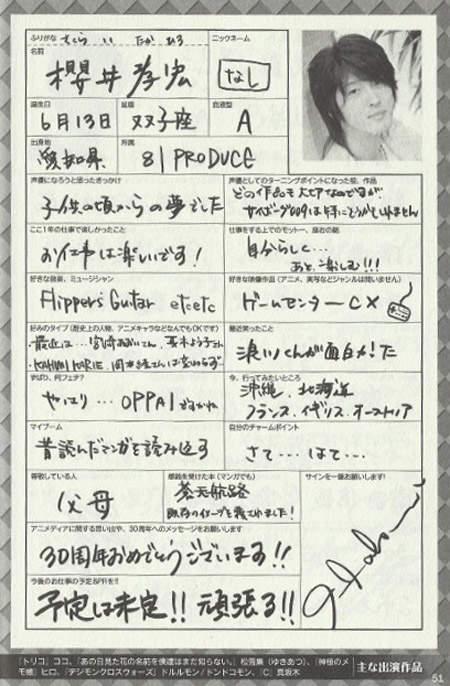 ふりがな さくらい たかひろ
ニックネーム
名前
櫻井孝宏
なし
誕生日
星座
血液型
6月13日
双子座
A
出身地
所属
愛知県
81 PRODUCE
声優になろうと思ったきっかけ
声優としてのターニングポイントになった役、作品
子供の頃からの夢でした
どの作品も大切なのですが
サイボーグ009は特に
ここ1年の仕事で楽しかったこと
仕事をする上でのモットー、座右の銘
お仕事は楽しいです!
自分らしく…
あと、楽しむ!!!
好きな音楽、ミュージシャン
好きな映像作品(アニメ、実写などジャンルは問いません)
Flipper's Guitar etc etc
ゲームセンターCX
好みのタイプ(歴史上の人物、アニメキャラなどなんでもOKです)
最近笑ったこと
最近は…宮崎あおいさん、
KAHIMI KARIE、
浪川くんが面白かった
やっぱり、何フェチ?
今、行ってみたいところ
やはり…OPPAIですかね
沖縄、北海道
フランス、イギリス、オーストリア
マイブーム
自分のチャームポイント
昔読んだマンガを読み返す
さて…はて…
尊敬している人
感銘を受けた本(マンガでも)
サインを一筆お願いします!
父母
蒼天航路
既存のイメージを覆されました!
アニメディアに関する思い出や、30周年へのメッセージをお願いします
30周年おめでとうございます!!
今後のお仕事の予定&PRを!!
予定は未定!! 頑張る!!
『トリコ』ココ、『あの日見た花の名前を僕達はまだ知らない。』松雪集(ゆきあつ)、『神様のメ
モ帳』ヒロ、『デジモンクロスウォーズ』ドルルモン/トンドコモン、『C』真坂木
主な出演作品
51